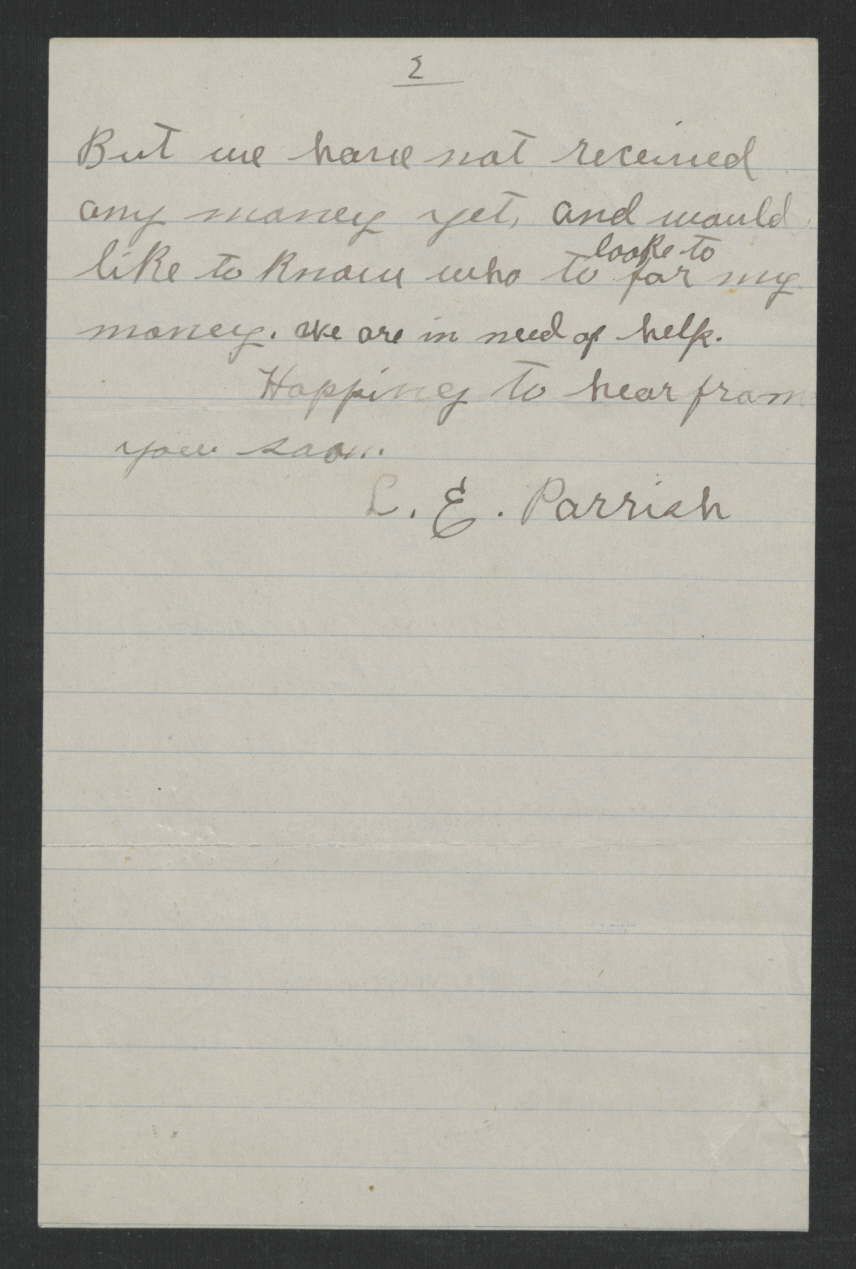 2
But we have not received
any money yet, and would
like to know who to looke to for my
money. we are in need of help.
Hopping to hear from
you soon.
L. E. Parrish